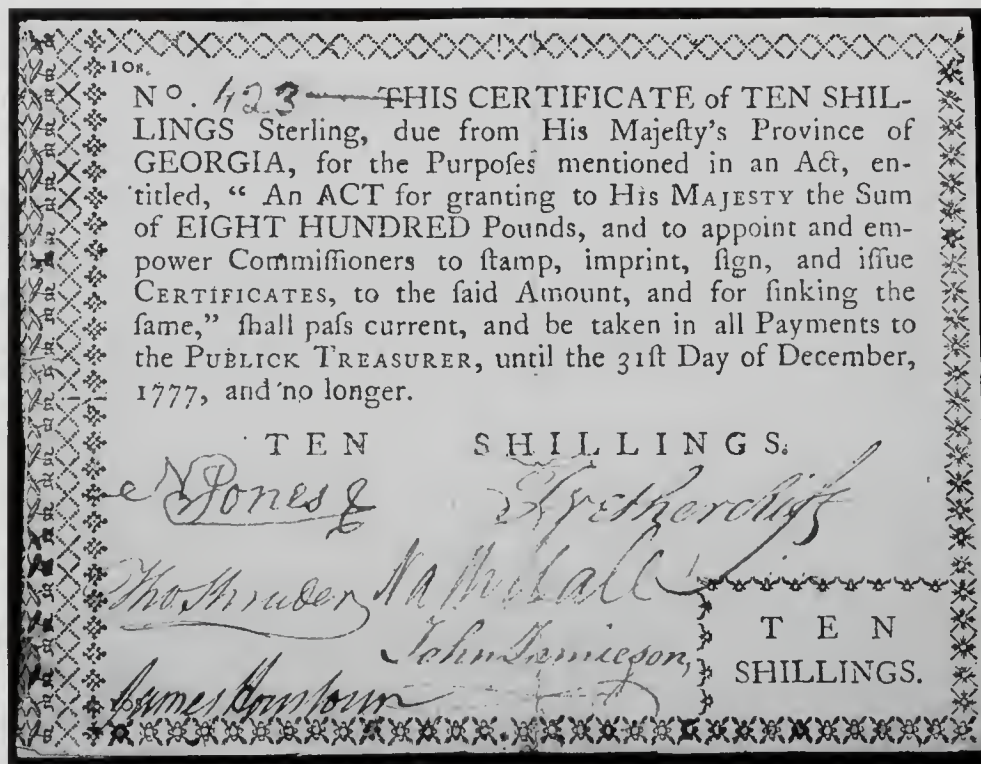 10s.
No. 423 THIS CERTIFICATE of TEN SHIL-
LINGS Sterling, due from His Majeſty's Province of
GEORGIA, for the Purpoſes mentioned in an Act, en-
titled, “ An ACT for granting to His MAJESTY the Sum
of EIGHT HUNDRED Pounds, and to appoint and em-
power Commiſſioners to ſtamp, imprint, ſign, and iſſue
CERTIFICATES, to the ſaid Amount, and for ſinking the
ſame,” ſhall paſs current, and be taken in all Payments to
the PUBLICK TREASURER, until the 31ſt Day of December,
1777, and no longer.
TEN SHILLINGS.
N Jones
Tho Shruder Na Hall
John Jamieson,
James
TEN
SHILLINGS.